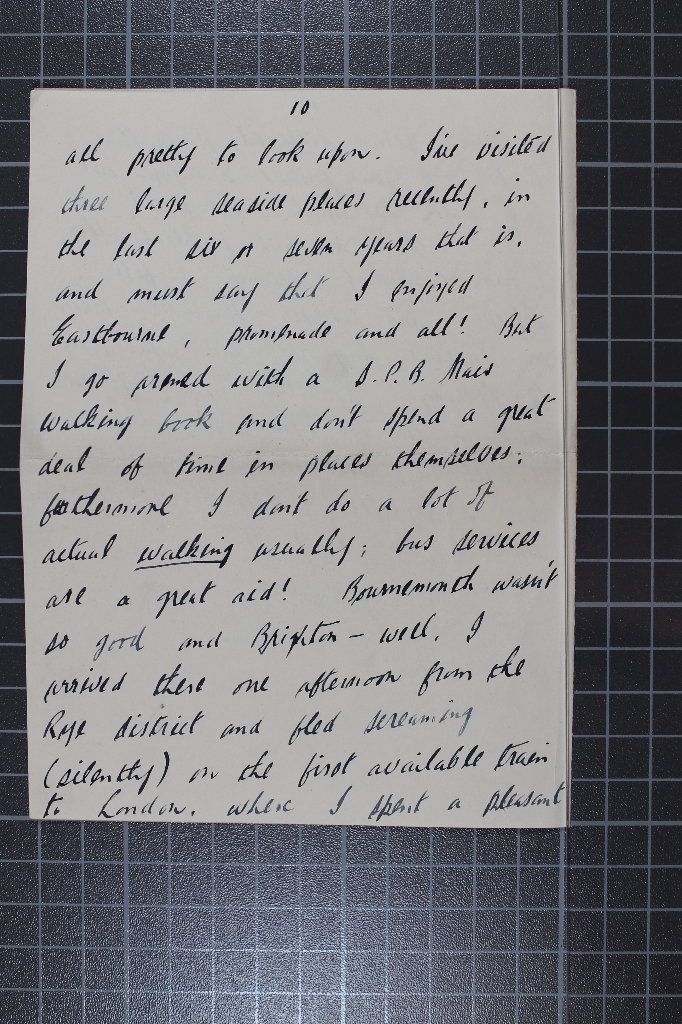 10
all pretty to look upon. I've visited
three large seaside places recently, in
the last six or seven years that is,
and must say that I enjoyed
Eastbourne, promenade and all! But
I go armed with a S.P.B. Mais
walking book and don't spend a great
deal of time in places themselves;
furthermore I don't do a lot of
actual walking usually; bus services
are a great aid! Bournemouth wasn't
so good and Brighton - well, I
arrived there one afternoon from the
Rye district and fled screaming
(silently) on the first available train
to London, where I spent a pleasant